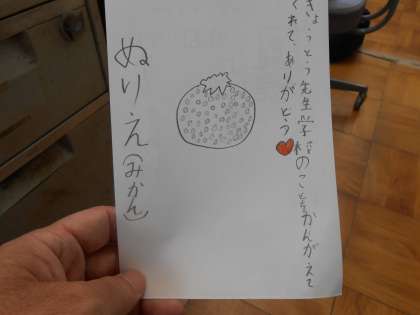 きょうとう先生学校のことをかんがえて
くれてありがとう
ぬりえ(みかん)